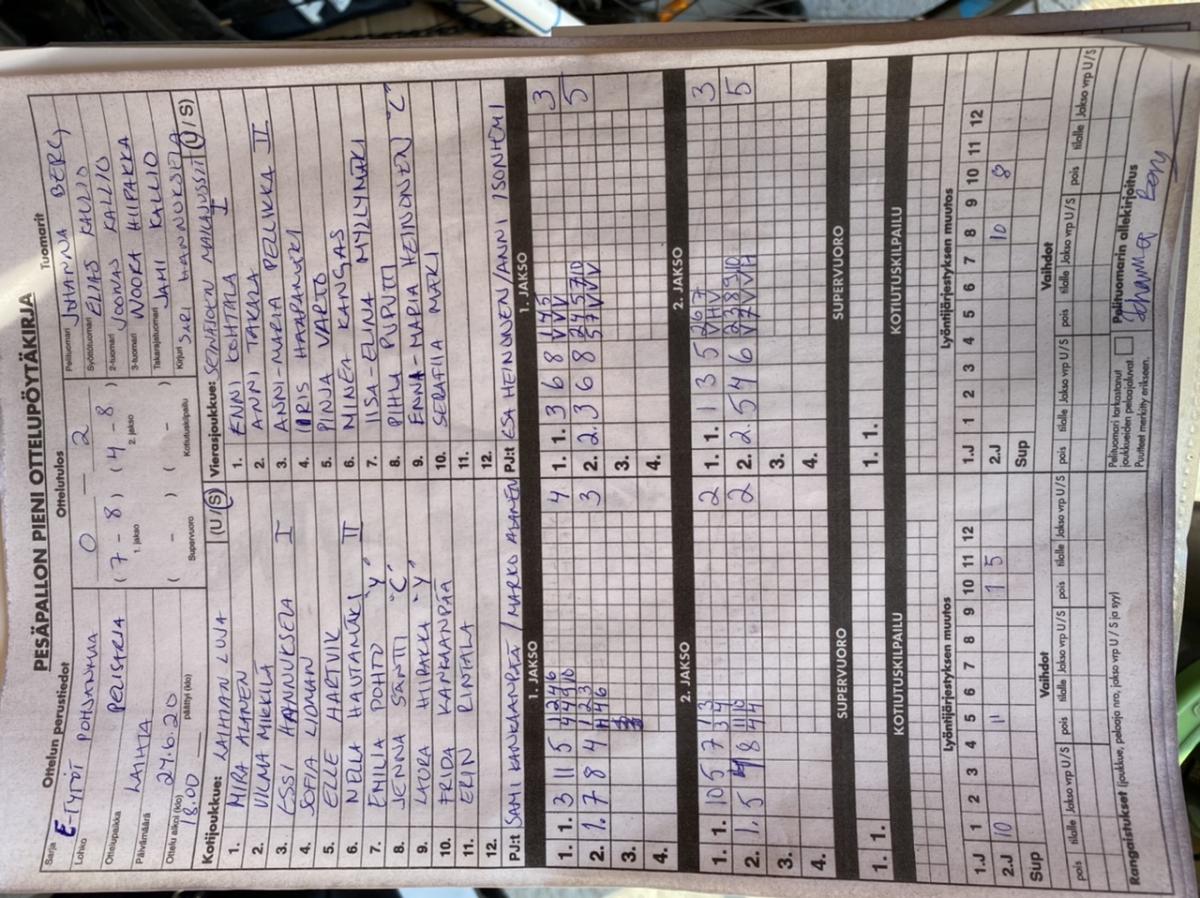 PESÄPALLON PIENI OTTELUPÖYTÄKIRJA
Ottelun perustiedot
Ottelutulos
Tuomarit
Sarja E-TYTÖT
Lohko POHJANMAA
Ottelupaikka PELISARJA
Päivämäärä LAIHIA
Ottelu alkoi (klo) 24.6.20
18.00
päättyi (klo)
0 – 2
( 7 – 8 ) ( 4 – 8 )
1. jakso 2. jakso
( – ) ( – )
Supervuoro Kotiutuskilpailu
Pelituomari JOHANNA BERG
Syöttötuomari ELIAS KALLIO
2-tuomari JOONAS KALLIO
3-tuomari NOORA HIIPAKKA
Takarajatuomari JAMI KALLIO
Kirjuri SARI HANNUKSELA
Kotijoukkue: LAIHIAN LUJA (U/S)
1. MIRA ALANEN
2. VILMA MIEKILÄ
3. ESSI HANNUKSELA I
4. SOFIA LIOMAN
5. ELLE HARTVIK
6. NELLA HAUTAMÄKI II
7. EMILIA POHTO "Y"
8. JENNA SÄNTTI "C"
9. LAURA HIIPAKKA "Y"
10. FRIDA KANKAANPÄÄ
11. ERIN RINTALA
12.
PJ:t SAMI KANKAANPÄÄ / MARKO ALANEN
Vierasjoukkue: SEINÄJOEN MAILAJUSSIT (U/S)
1. ENNI KOHTALA I
2. ANNI TAKALA
3. ANNI-MARIA PELLIKKA II
4. IIRIS HAAPAMÄKI
5. PINJA VARTO
6. MINEA KANGAS
7. IISA-ELINA MYLLYMÄKI
8. PIHLA PUPUTTI
9. ENNA-MARIA HEINONEN "C"
10. SERAFIA MÄKI
11.
12.
PJ:t ESA HEINONEN/ANNI ISONIEMI
1. JAKSO
1. 1. 3 11 5 4
2. 1. 7 8 4 3
3.
4.
1. JAKSO
1. 1. 3 6 8 3
2. 2. 3 6 8 5
3.
4.
2. JAKSO
1. 1. 10 5 7 2
2. 1. 5 8 4 2
3.
4.
2. JAKSO
1. 1. 1 3 5 3
2. 2. 5 4 6 5
3.
4.
SUPERVUORO
1. 1.
SUPERVUORO
1. 1.
KOTIUTUSKILPAILU
KOTIUTUSKILPAILU
Lyöntijärjestyksen muutos
1 2 3 4 5 6 7 8 9 10 11 12
1.J
2.J 10 11 1 5
Sup
Lyöntijärjestyksen muutos
1.J 1 2 3 4 5 6 7 8 9 10 11 12
2.J 10 8
Sup
Vaihdot
pois tilalle Jakso vrp U/S pois tilalle Jakso vrp U/S pois tilalle Jakso vrp U/S
Vaihdot
pois tilalle Jakso vrp U/S pois tilalle Jakso vrp U/S pois tilalle Jakso vrp U/S
Rangaistukset (joukkue, pelaaja nro, jakso, vrp U / S ja syy)
Pelituomari tarkastanut
joukkueiden pelaajaluvat
Puutteet merkitty erikseen.
Pelituomarin allekirjoitus
Johanna Berg